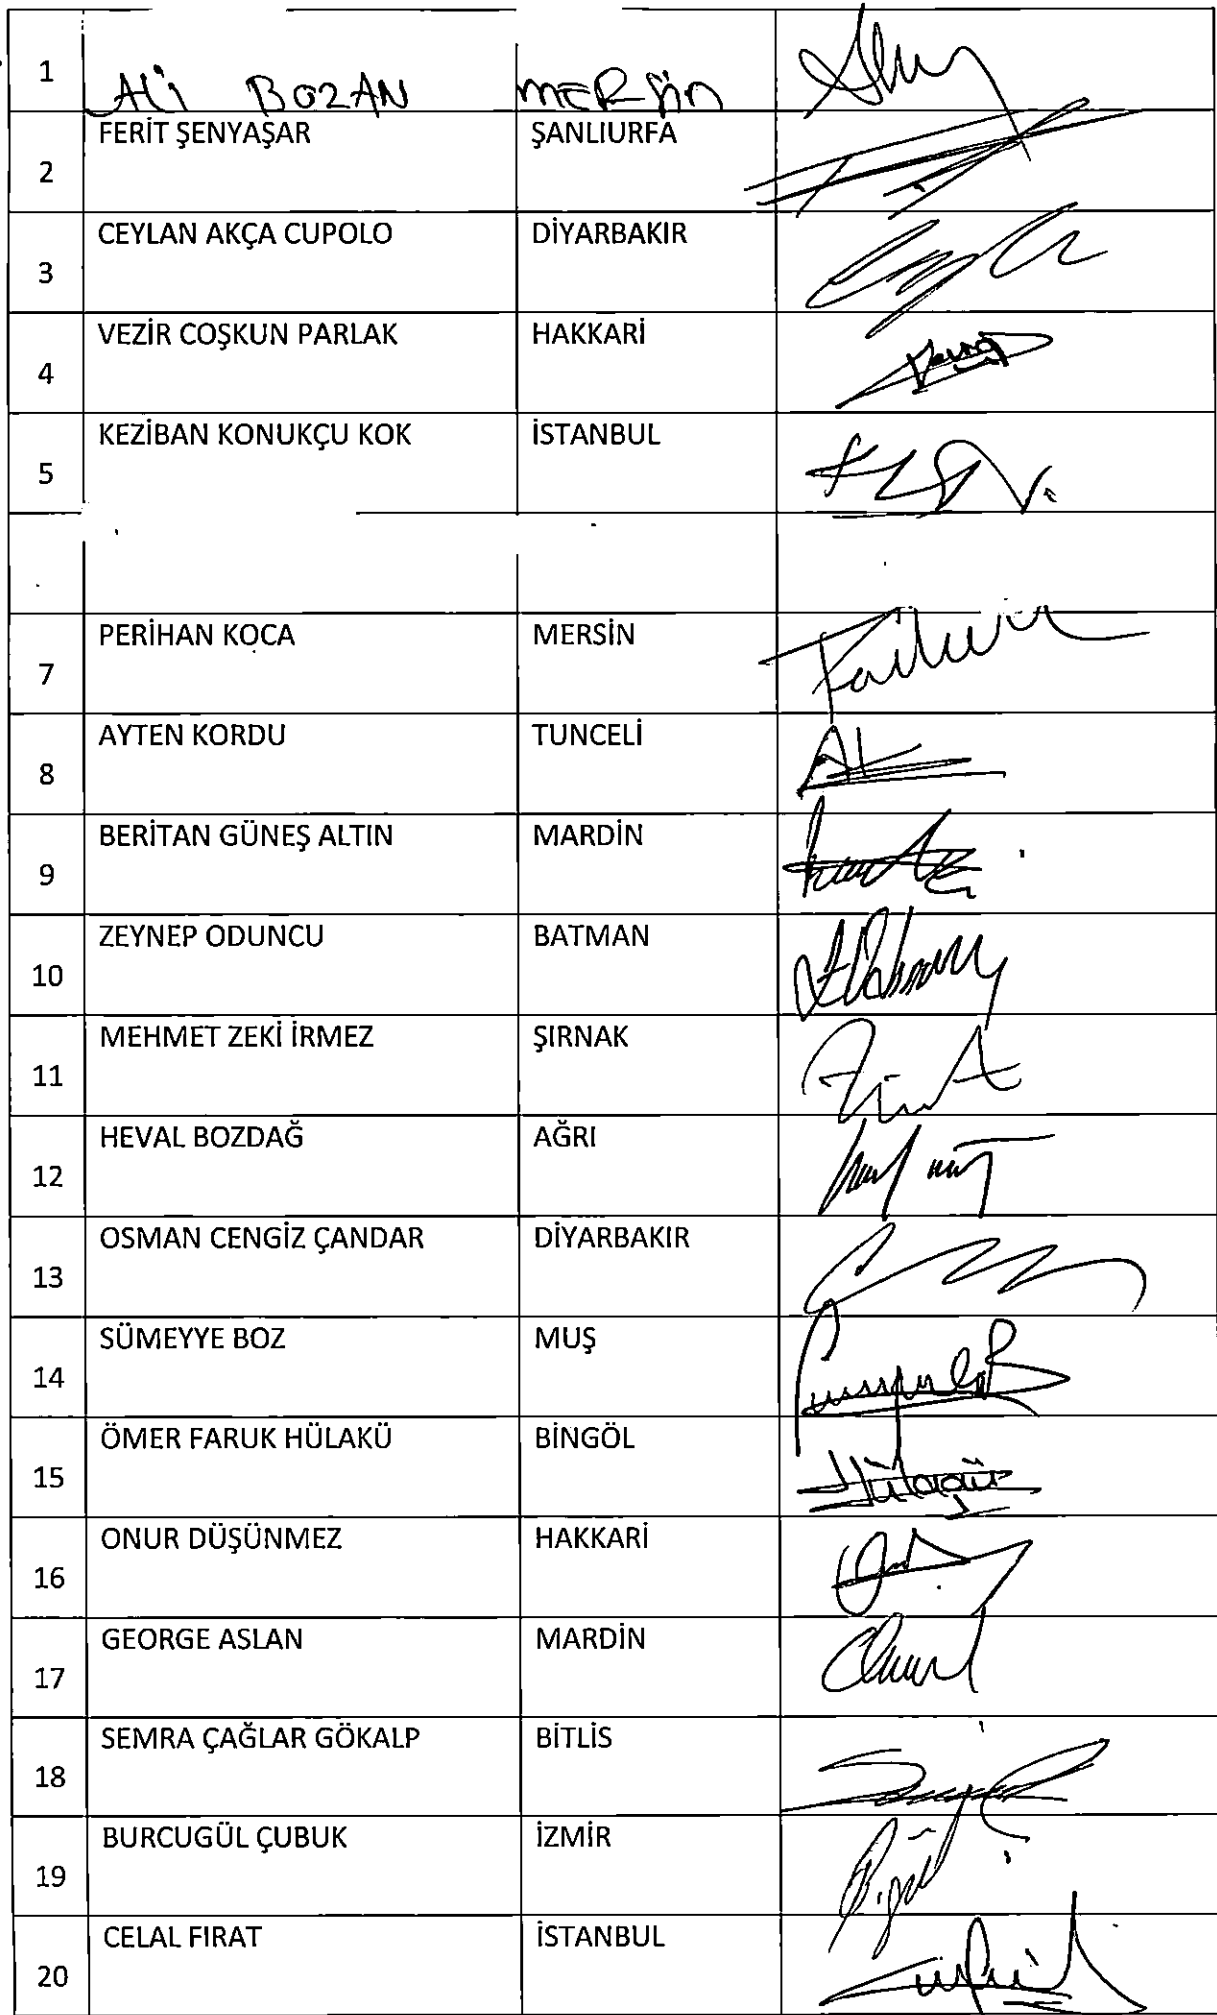 1 Ali BOZAN MERSİN
2 FERİT ŞENYAŞAR ŞANLIURFA
3 CEYLAN AKÇA CUPOLO DİYARBAKIR
4 VEZİR COŞKUN PARLAK HAKKARİ
5 KEZİBAN KONUKÇU KOK İSTANBUL
7 PERİHAN KOCA MERSİN
8 AYTEN KORDU TUNCELİ
9 BERİTAN GÜNEŞ ALTIN MARDİN
10 ZEYNEP ODUNCU BATMAN
11 MEHMET ZEKİ İRMEZ ŞIRNAK
12 HEVAL BOZDAĞ AĞRI
13 OSMAN CENGİZ ÇANDAR DİYARBAKIR
14 SÜMEYYE BOZ MUŞ
15 ÖMER FARUK HÜLAKÜ BİNGÖL
16 ONUR DÜŞÜNMEZ HAKKARİ
17 GEORGE ASLAN MARDİN
18 SEMRA ÇAĞLAR GÖKALP BİTLİS
19 BURCUGÜL ÇUBUK İZMİR
20 CELAL FIRAT İSTANBUL